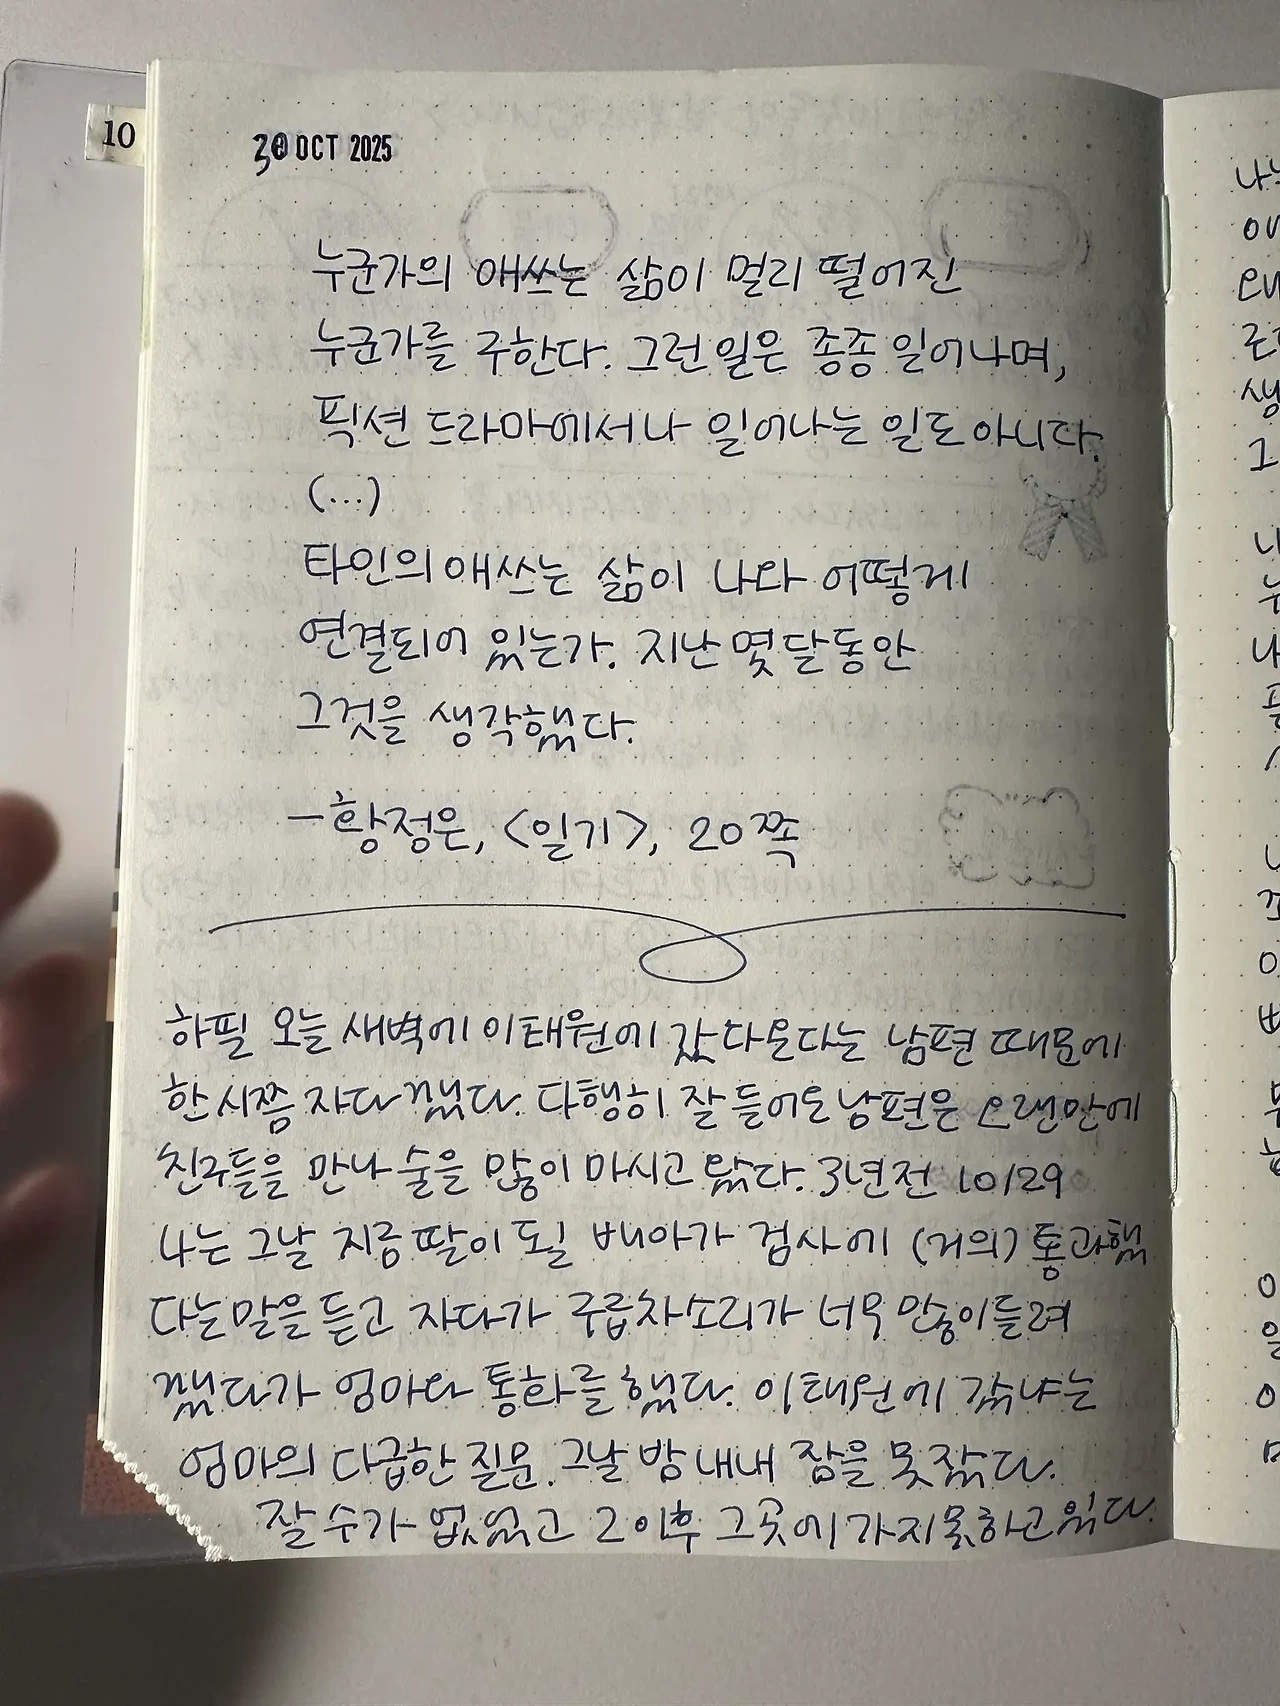 10
30 OCT 2025
누군가의 애쓰는 삶이 멀리 떨어진
누군가를 구한다. 그런 일은 종종 일어나며,
픽션 드라마에서나 일어나는 일도 아니다.
(...)
타인의 애쓰는 삶이 나와 어떻게
연결되어 있는가. 지난 몇 달 동안
그것을 생각했다.
- 황정은, <일기>, 20쪽
하필 오늘 새벽에 이태원에 갔다온다는 남편 때문에
한시쯤 자다 깼다. 다행히 잘 들어온 남편은 오랜만에
친구들을 만나 술을 많이 마시고 왔다. 3년전 10/29
나는 그날 지금 딸이 될 배아가 검사에 (거의) 통과했
다는 말을 듣고 자다가 구급차 소리가 너무 많이 들려
깼다가 엄마와 통화를 했다. 이태원에 갔냐는
엄마의 다급한 질문. 그날 밤 내내 잠을 못 잤다.
잘 수가 없었고 그 이후 그곳에 가지 못하고 있다.
나는
생